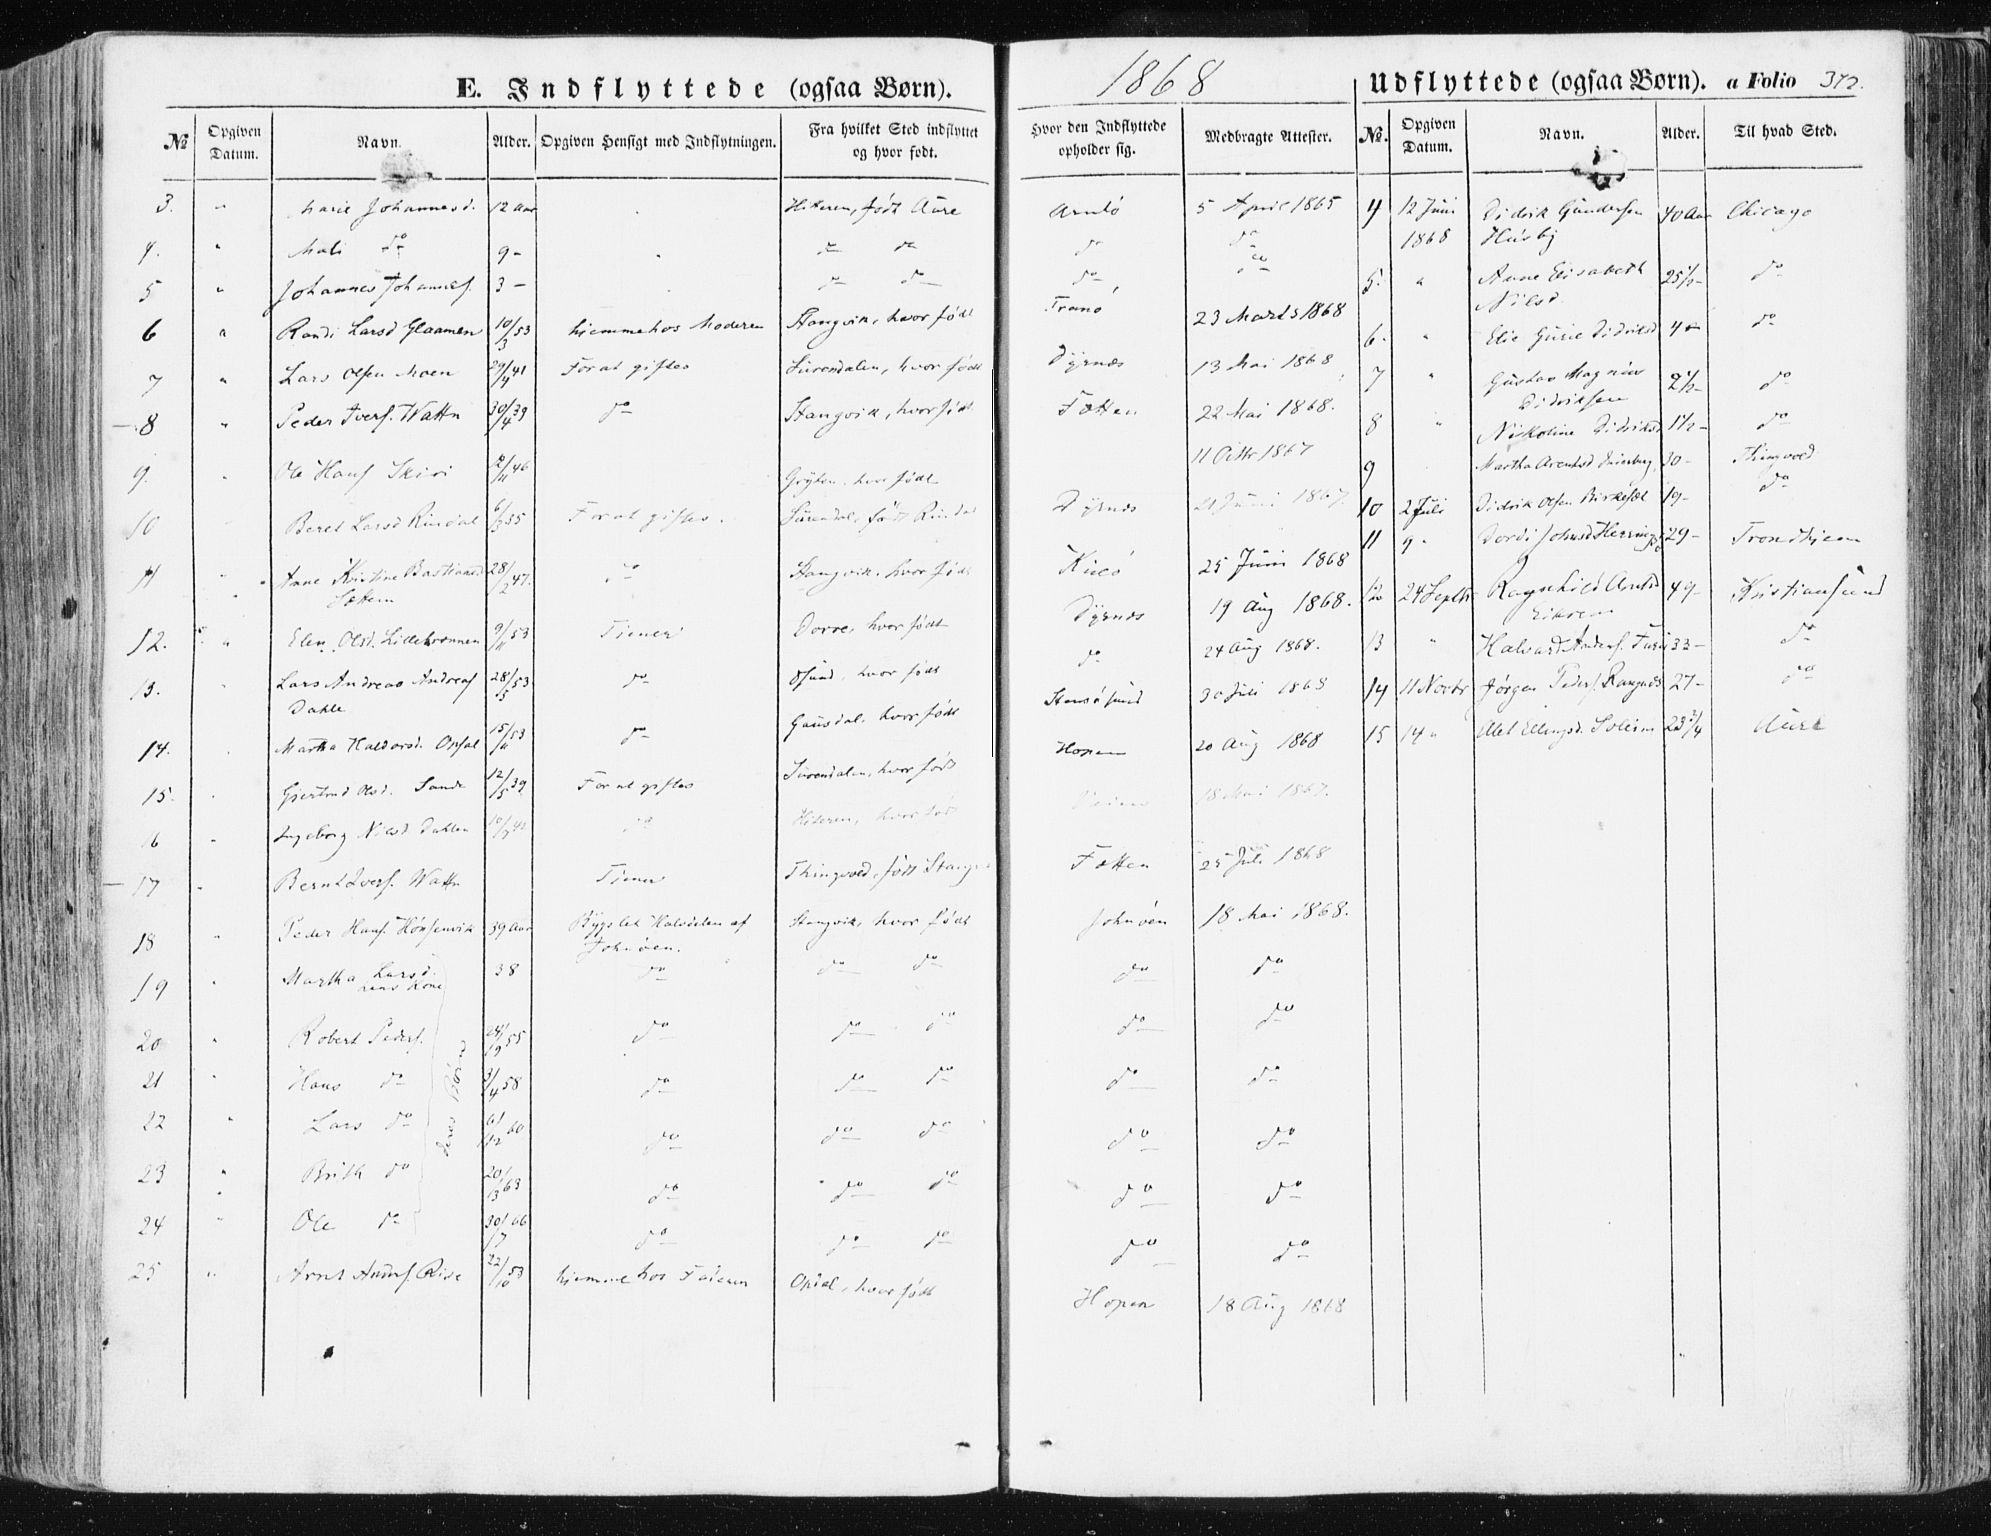 E. Indflyttede (ogsaa Børn).
1868
Udflyttede (ogsaa Børn). a Folio 372.
№ Opgiven Datum. Navn. Alder. Opgiven Hensigt med Indflytningen. Fra hvilket Sted indflyttet og hvor født. Hvor den Indflyttede opholder sig. Medbragte Attester.
3. " Marie Johannesd. 12 Aar " Hiteren, født Aure Arnlö 5 April 1865
4. " Mali do 9 - " do do do do
5 " Johannes Johannesf. 3 - do do do do
6 " Randi Larsd Glaamen 10/3 53 hjemme hos Moderen Stangvik, hvor født Tranö 23 Marts 1868
7 " Lars Olsen Moen 29/4 41 For at giftes Surendalen, hvor født Dyrnæs 13 Mai 1868
8 " Peder Iversf. Wattn 30/4 39 do Stangvik, hvor født Fætten 22 Mai 1868.
9. " Ole Hansf Skiri /11 46 Grytten, hvor født 11 Octbr 1867
10 Beret Larsd Rindal 6/3 35 For at giftes. Surendal, født Rindal Dyrnæs 21 Juni 1867.
11 " Anne Kristine Bastiansd 28/2 47. do Stangvik, hvor født 25 Juni 1868
Sættem
12. " Elen Olsd. Lillebrønnen 9/11 53 Tjener Dovre, hvor født Dyrnæs 19 Aug 1868.
13. " Lars Andreas Andreasf 28/5 53 do Øsund, hvor født do 24 Aug 1868.
Dahle
14. Martha Haldorsd. Opsal 15/11 53 do Gausdal, hvor født 30 Juli 1868
15. " Gjertrud Olsd. Sande 12/5 39 For at giftes Surendalen, hvor født Hopen 20 Aug 1868
16 " Ingeborg Nilsd Dahlen do Hiteren, hvor født 18 Mai 1867.
17 " Bernt Iversf. Wattn Tjener Thingvold, født Stangv Fætten 25 Juli 1868
18 " Peder Hansf. Hönsenvik 39 Aar Bygslet Halvdelen af Johnöen. Stangvik, hvor født Johnöen 18 Mai 1868.
19 " Martha Larsd. hans Kone 38 do do do do do
20 " Robert Pedersf. 24/9 55 do do do do do
deres Børn
21 " Hans do 3/4 58 do do do do do
22 " Lars do 6/12 60 do do do do do
23 " Brith do 63 do do do do do
24 " Ole do 30/7 66 do do do do do
25 " Arnt Andersf. Rise 22/10 53 hjemme hos Faderen Opdal, hvor født Hopen 18 Aug 1868
№. Opgiven Datum. Navn. Alder. Til hvad Sted.
4 12 Juni 1868 Didrik Gundersen Husby 40 Aar Chicago
5. " Anne Elisabeth Nilsd. 25½ - do
6. " Elie Gurie Didriksd 4 - do
7 " Gustav Magnus Didriksen 2½ - do
8 " Nikoline Didriksd 1½ - do
9 Martha Arentsd 30 - Thingvold
10 2 Juli Didrik Olsen Birkesæt 19 - do
11 9 " Dordi Johnsd 29 - Trondhjem
12 24 Septbr Ragnhild Arntsd 49 - Kristiansund
13 " Halvard Andersf. 33 - do
14 11 Novbr Jörgen Pedersf. Rangnæs 27 - do
15 14 " Alet Ellingsd. Soleim 23¾ Aure